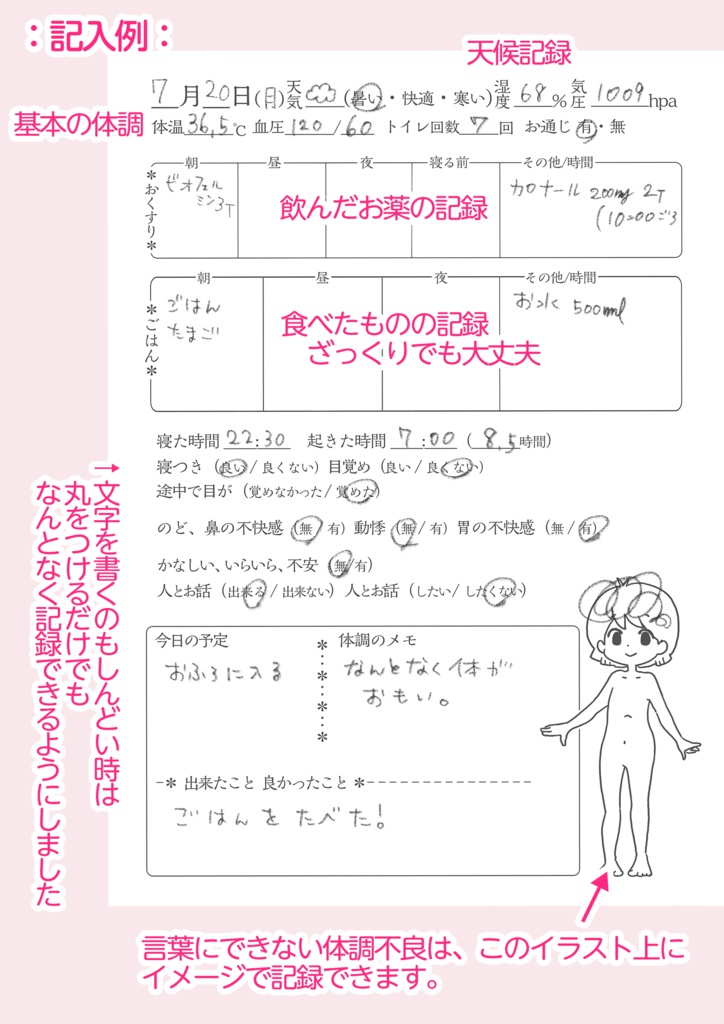 ：記入例：
天候記録
7月20日(月)天気(暑い・快適・寒い)湿度 68 % 気圧 1009 hpa
基本の体調
体温 36.5 ℃ 血圧 120 / 60 トイレ回数 7 回 お通じ 有・無
朝 昼 夜 寝る前 その他/時間
＊おくすり＊
ビオフェルミン3T
飲んだお薬の記録
カロナール 200mg 2T
(10:00ごろ
朝 昼 夜 その他/時間
＊ごはん＊
ごはん
たまご
食べたものの記録
ざっくりでも大丈夫
お水 500ml
寝た時間 22:30 起きた時間 7:00 ( 8.5 時間)
寝つき (良い / 良くない) 目覚め (良い / 良くない)
途中で目が (覚めなかった / 覚めた)
のど、鼻の不快感 (無 / 有) 動悸 (無 / 有) 胃の不快感 (無 / 有)
かなしい、いらいら、不安 (無/有)
人とお話 (出来る / 出来ない) 人とお話 (したい / したくない)
→文字を書くのもしんどい時は
丸をつけるだけでも
なんとなく記録できるようにしました
今日の予定
おふろに入る
体調のメモ
なんとなく体が
おもい。
-＊ 出来たこと 良かったこと ＊---------------
ごはんをたべた!
言葉にできない体調不良は、このイラスト上に
イメージで記録できます。